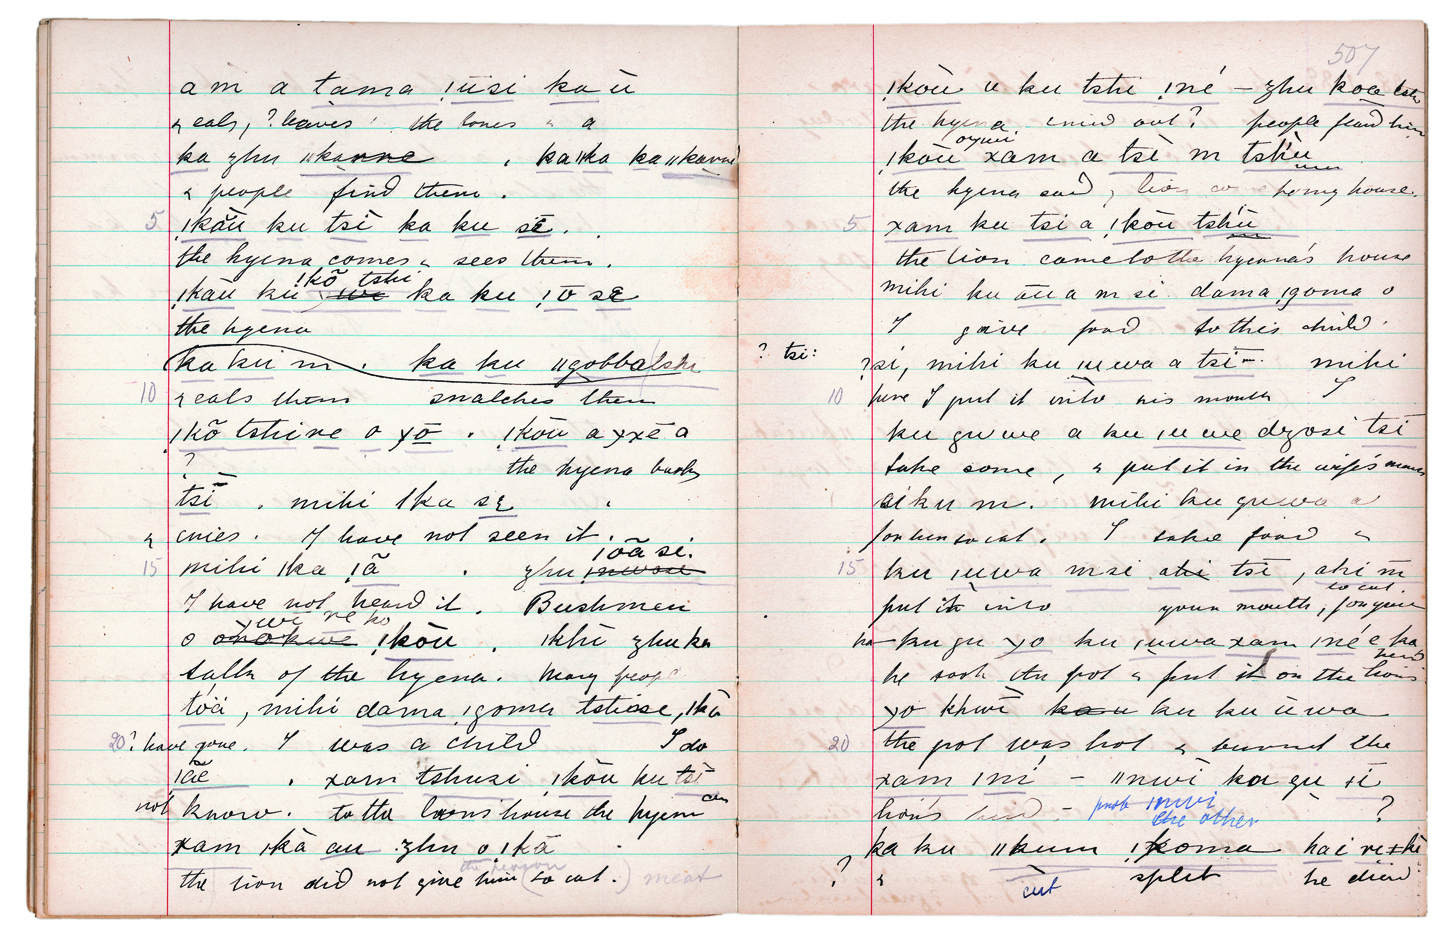 am a tama ǃüsi ka ŭ
& eats, ? leaves the bones & a
ka zhu ǁkanne , kaǁka kaǁkanne
& people find them .
5 ǃkãŭ ku tsĭ ka ku sɛ̄ .
the hyena comes & sees them .
ǃkõ tshi
ǃkãŭ ku ka ku ǃō sɛ
the hyena
ka ku m . ka ku ǁgobba tshi
10 & eats them snatches them
ǃkõ tshi ne o χō . ǃkõŭ a χχē a
? the hyena barks
tsĭ . mihi ǀka sɛ .
& cries . I have not seen it .
ǀõã si .
15 mihi ǀka ǀã . zhu
I have not heard it . Bushmen
o ǃkõŭ , ǀkhĭ zhu ka
talk of the hyena . Many people
tõä , mihi dama ǀgoma tshiase , ǀkã
20 ? have gone . I was a child I do
ǀãē . xam tshuzi ǃkõŭ ku tsĭ
not know . to the lion's house the hyena
xam ǀkã au zhu o ǀkã .
the lion did not give him ( to eat . ) meat
the person
507
ǃkõŭ ŭ ku tshu ǀné — zhu koa
the hyena cried out ? people
ǃkõŭ xam a tsĭ m tshŭ
the hyena said , lion come to my house .
5 xam ku tsi a ǃkõŭ tshŭ
the lion came to the hyena's house
mihi ku õŭ a m si dama ǀgoma o
I gave food to this child .
? tsi :
? si , mihi ku ǀuwa a tsĭ mihi
10 here I put it into his mouth I
ku guwe a ku ǀuwe dzosi tsĭ
take some , & put it in the wife's mouth
si ku m . mihi ku guwa a
for him to eat . I take food &
15 ku ǀuwa m si ahi tsĭ , ahi m
put it into your mouth , for you
to eat .
ha ku gu χo ku ǀuwa xam ǀné e ka
he took the pot & put it on the lion's
head
χo khwĭ ku ku ŭ wa
20 the pot was hot & burned the
xam ǀní — ǁnwĭ ka gu tĭ
lion's head — prob ǀnwi ?
the other
ka ku ǁkum ǃkoma hai
? & cut split he died